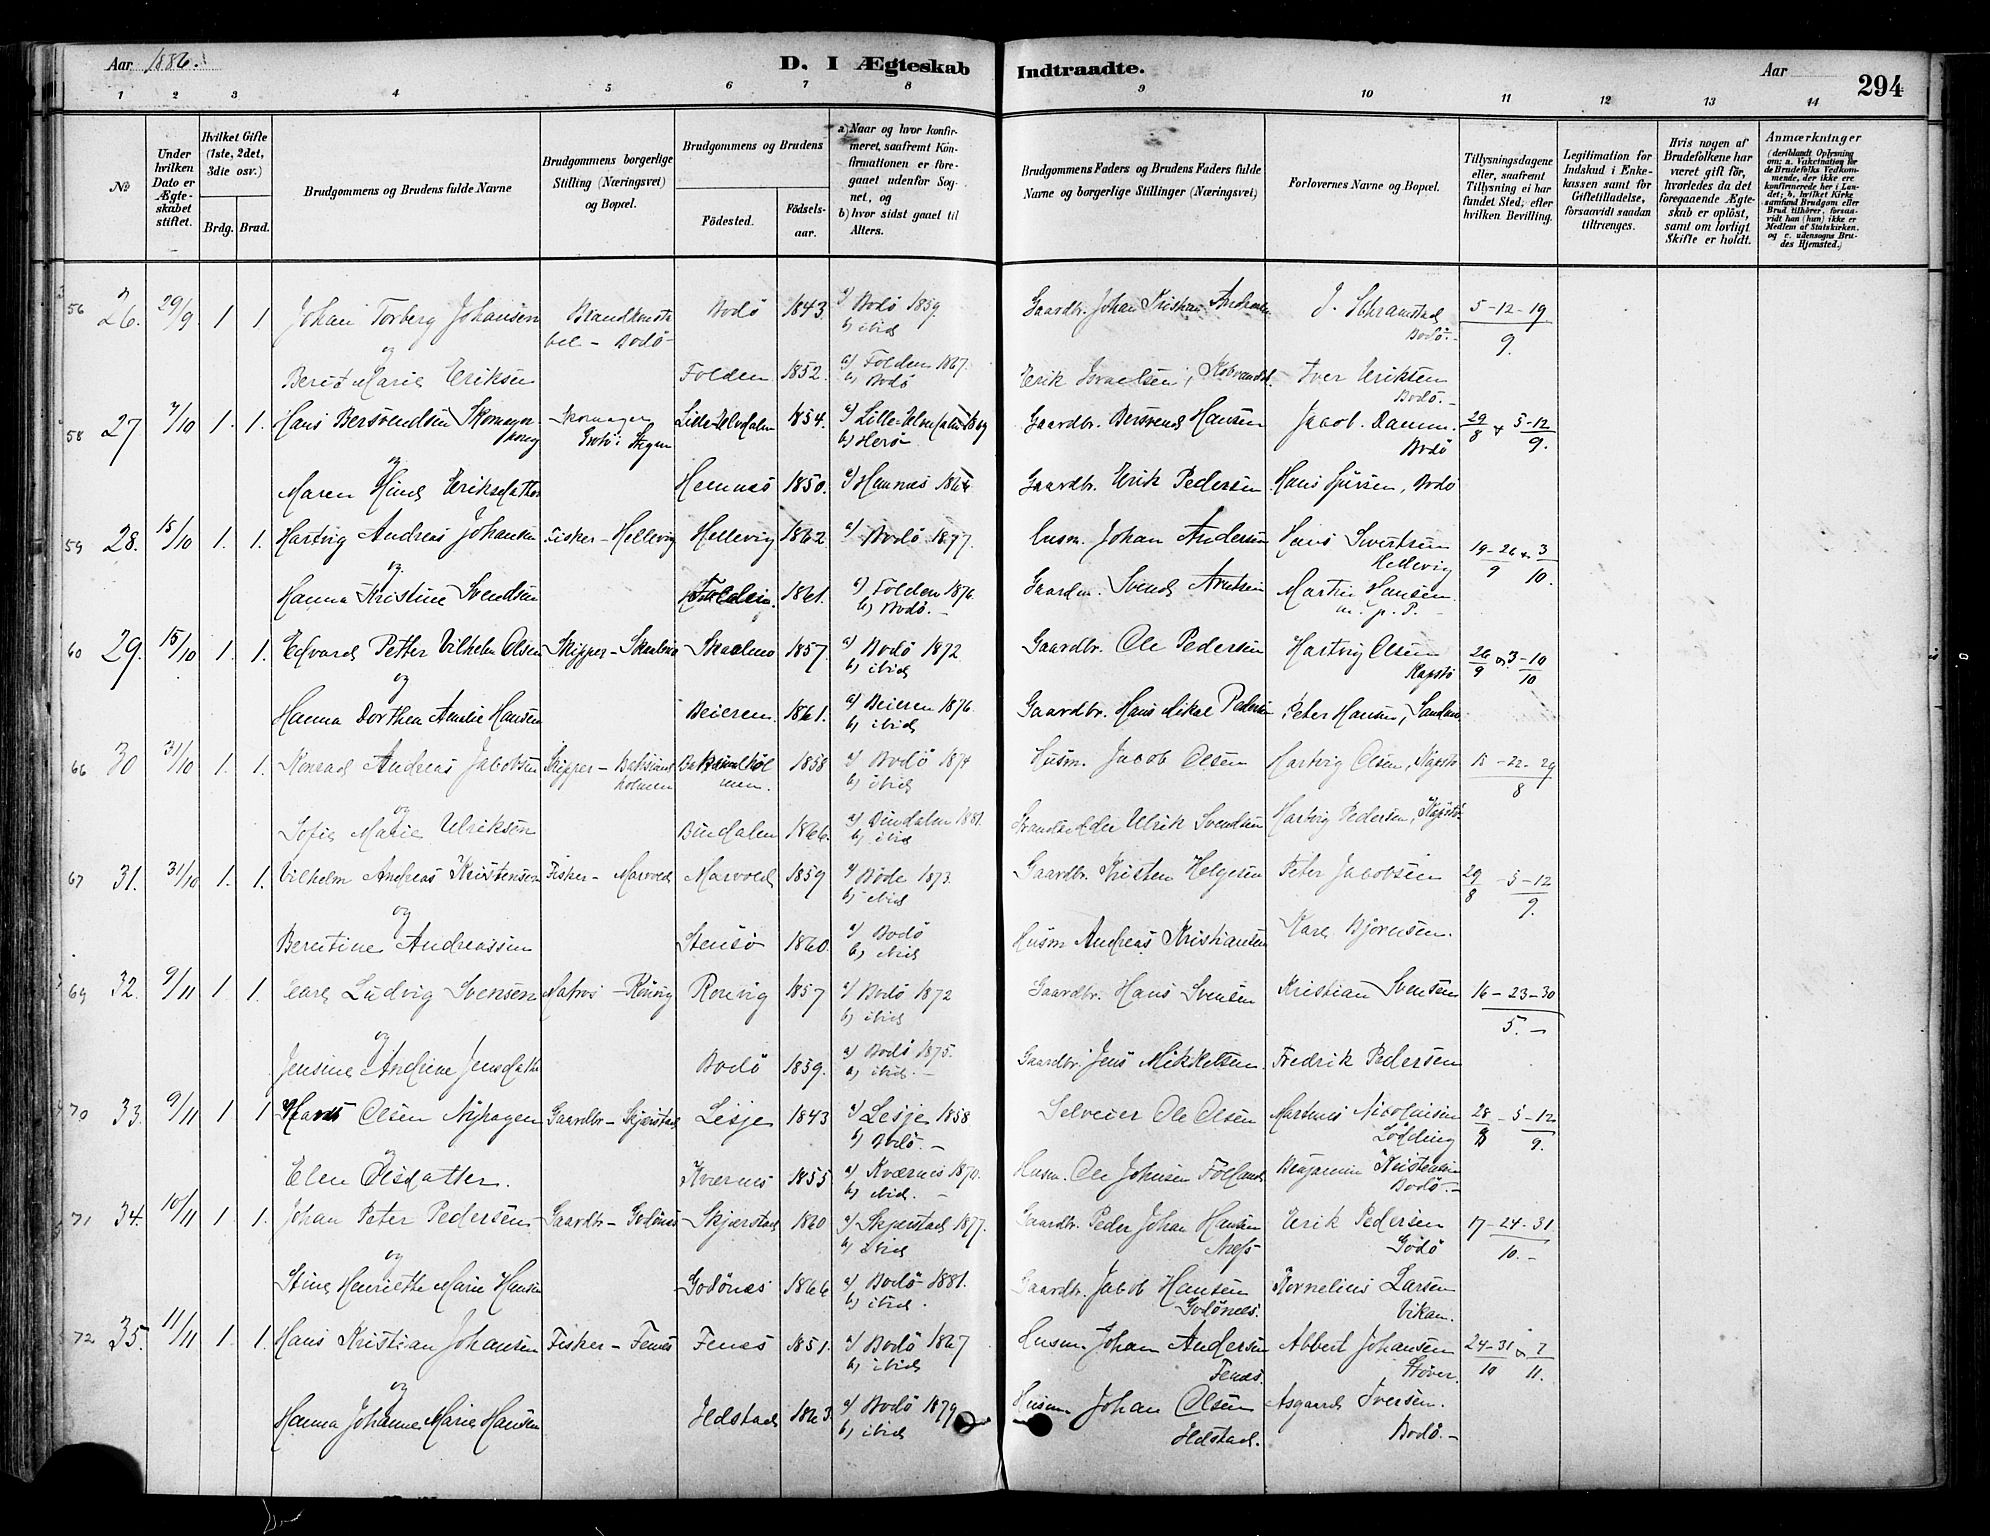 Aar 1886. D. I Ægteskab Indtraadte. Aar 294
1 2 3 4 5 6 7 8 9 10 11 12 13 14
№
Under hvilken Dato er Ægteskabet stiftet.
Hvilket Gifte (1ste, 2det, 3die osv.)
Brdg. Brud.
Brudgommens og Brudens fulde Navne
Brudgommens borgerlige Stilling (Næringsvei) og Bopæl.
Brudgommens og Brudens
Fødested. Fødselsaar.
a) Naar og hvor konfirmeret, saafremt Konfirmationen er foregaaet udenfor Sognet, og
b) hvor sidst gaaet til Alters.
Brudgommens Faders og Brudens Faders fulde Navne og borgerlige Stillinger (Næringsvei)
Forlovernes Navne og Bopæl.
Tillysningsdagene eller, saafremt Tillysning ei har fundet Sted, efter hvilken Bevilling.
Legitimation for Indskud i Enkekassen samt for Giftetilladelse, forsaavidt saadan tiltrænges.
Hvis nogen af Brudefolkene har været gift før, hvorledes da det foregaaende Ægteskab er opløst, samt om lovligt Skifte er holdt.
Anmærkninger (deriblandt Oplysning om: a. Vakcination for de Brudefolks Vedkommende, der ikke ere konfirmerede her i Landet; b. hvilket Kirkesamfund Brudgom eller Brud tilhører, forsaavidt han (hun) ikke er Medlem af Statskirken, og c. udensogns Brudes Hjemsted.)
56 26. 29/9 1 1 Johan Torberg Johansen Bodø 1843. a) Bodø 1859. Gaardbr. Johan Kristian J. Schramstad 5-12-19
Bodø b) ibid Bodø. 9.
og
Berit Marie Eriksen Folden 1852. a) Folden 1867. Erik Israelsen, Iver Eriksen
b) Bodø Bodø.
58 27 7/10 1. 1. Hans Bersvendsen Skomager Lille-Elvdalen 1854. a) Lille-Elvdalen Gaardbr. Bersvend Hansen Jacob Damm. 29/8 & 5-12
b) Herø Bodø 9.
og
Maren Eriksdatter Hemnæs 1850. a) Hemnæs Gaardbr. Erik Pedersen Hans Bodø
59 28. 15/10 1. 1. Hartvig Andreas Johansen Fisker - Hellevig Hellevig 1862 a) Bodø 1877. Husm. Johan Andersen Hans Sivertsen 19-26 & 3
Hellevig 9 10.
og
Hanna Kristine Svendsen Folden. 1861. a) Folden 1876. Gaardm. Svend Arntsen Martin Hansen
b) Bodø. m. p. P.
60 29. 15/10 1. 1. Edvard Petter Vilhelm Olsen Skipper - 1857. a) Bodø 1872 Gaardbr. Ole Pedersen Hartvig Olsen 26/9 & 3-10
b) ibid Kapstø 10
og
Hanna Dorthea Amalie Hansen Beieren 1861. a) Beieren 1876. Gaardbr. Hans Mikal Pedersen Peter Hansen,
b) ibid
66 30 31/10 1. 1. Konrad Andreas Jakobsen Skipper - 1858 a) Bodø 1874 Husm. Jacob Olsen Hartvig Olsen, Kapstø 15-22-29
holmen men. b) ibid 8
og
Sofie Marie Ulriksen Bindalen 1866. a) Bindalen 1881. Ulrik Svendsen Hartvig Pedersen, Kapstø
b) ibid
67 31. 31/10 1. 1. Vilhelm Andreas Kristensen Fisker - Marvold Marvold 1859 a) Bodø 1873. Gaardbr. Kristen Helgesen Peter Jacobsen 29/8 - 5-12
b) ibid 9.
og
Berntine Andreassen Stensø 1860. a) Bodø Husm Andreas Kristiansen Karl Bjørnsen.
b) ibid
69 32. 9/11 1 1. Carl Ludvig Svensen Matros - Rønvig Rønvig 1857 a) Bodø 1872 Gaardbr. Hans Svensen Kristian Svensen 16-23-30
b) ibid 5.-
og
Jensine Andrine Jensdatter Bodø 1859. a) Bodø 1875. Gaardbr. Jens Mikkelsen Fredrik Pedersen
b) ibid.-
70 33. 9/11 1 1 Hans Olsen Nyhagen Gaardbr - Skjerstad Lesje 1843 a) Lesje 1858 Selveier Ole Olsen Martinus Nicolaisen 28/8 - 5-12
b) Bodø.- Løding 9.
og
Elen Olsdatter. Kværnes 1855 a) Kværnes 1870. Husm. Ole Johnsen Folland Benjamin Kristensen
b) ibid.- Bodø.-
71 34. 10/11 1. 1. Johan Peter Pedersen Gaardbr - Godønes Skjerstad 1860 a) Skjerstad 1877. Gaardbr. Peder Johan Hansen Erik Pedersen 17-24-31
b) ibid Næss Godø 10.-
og
Stine Henriette Marie Hansen Godønes 1866 a) Bodø 1881. Gaardbr. Jakob Hansen Kornelius Larsen
b) ibid. Godønes. Vikan.
72 35. 11/11 1 1. Hans Kristian Johansen Fisker - Fenes Fenes 1851. a) Bodø 1867 Husm. Johan Andersen Abbert Johansen 24-31 & 7
b) ibid Fenes. Støver. 10 11.
og
Hanna Johanne Marie Hansen Ildstad 1863. a) Bodø 1879 Husm Johan Olsen Asgaard Iversen.
b) ibid Ildstad. Bodø.-